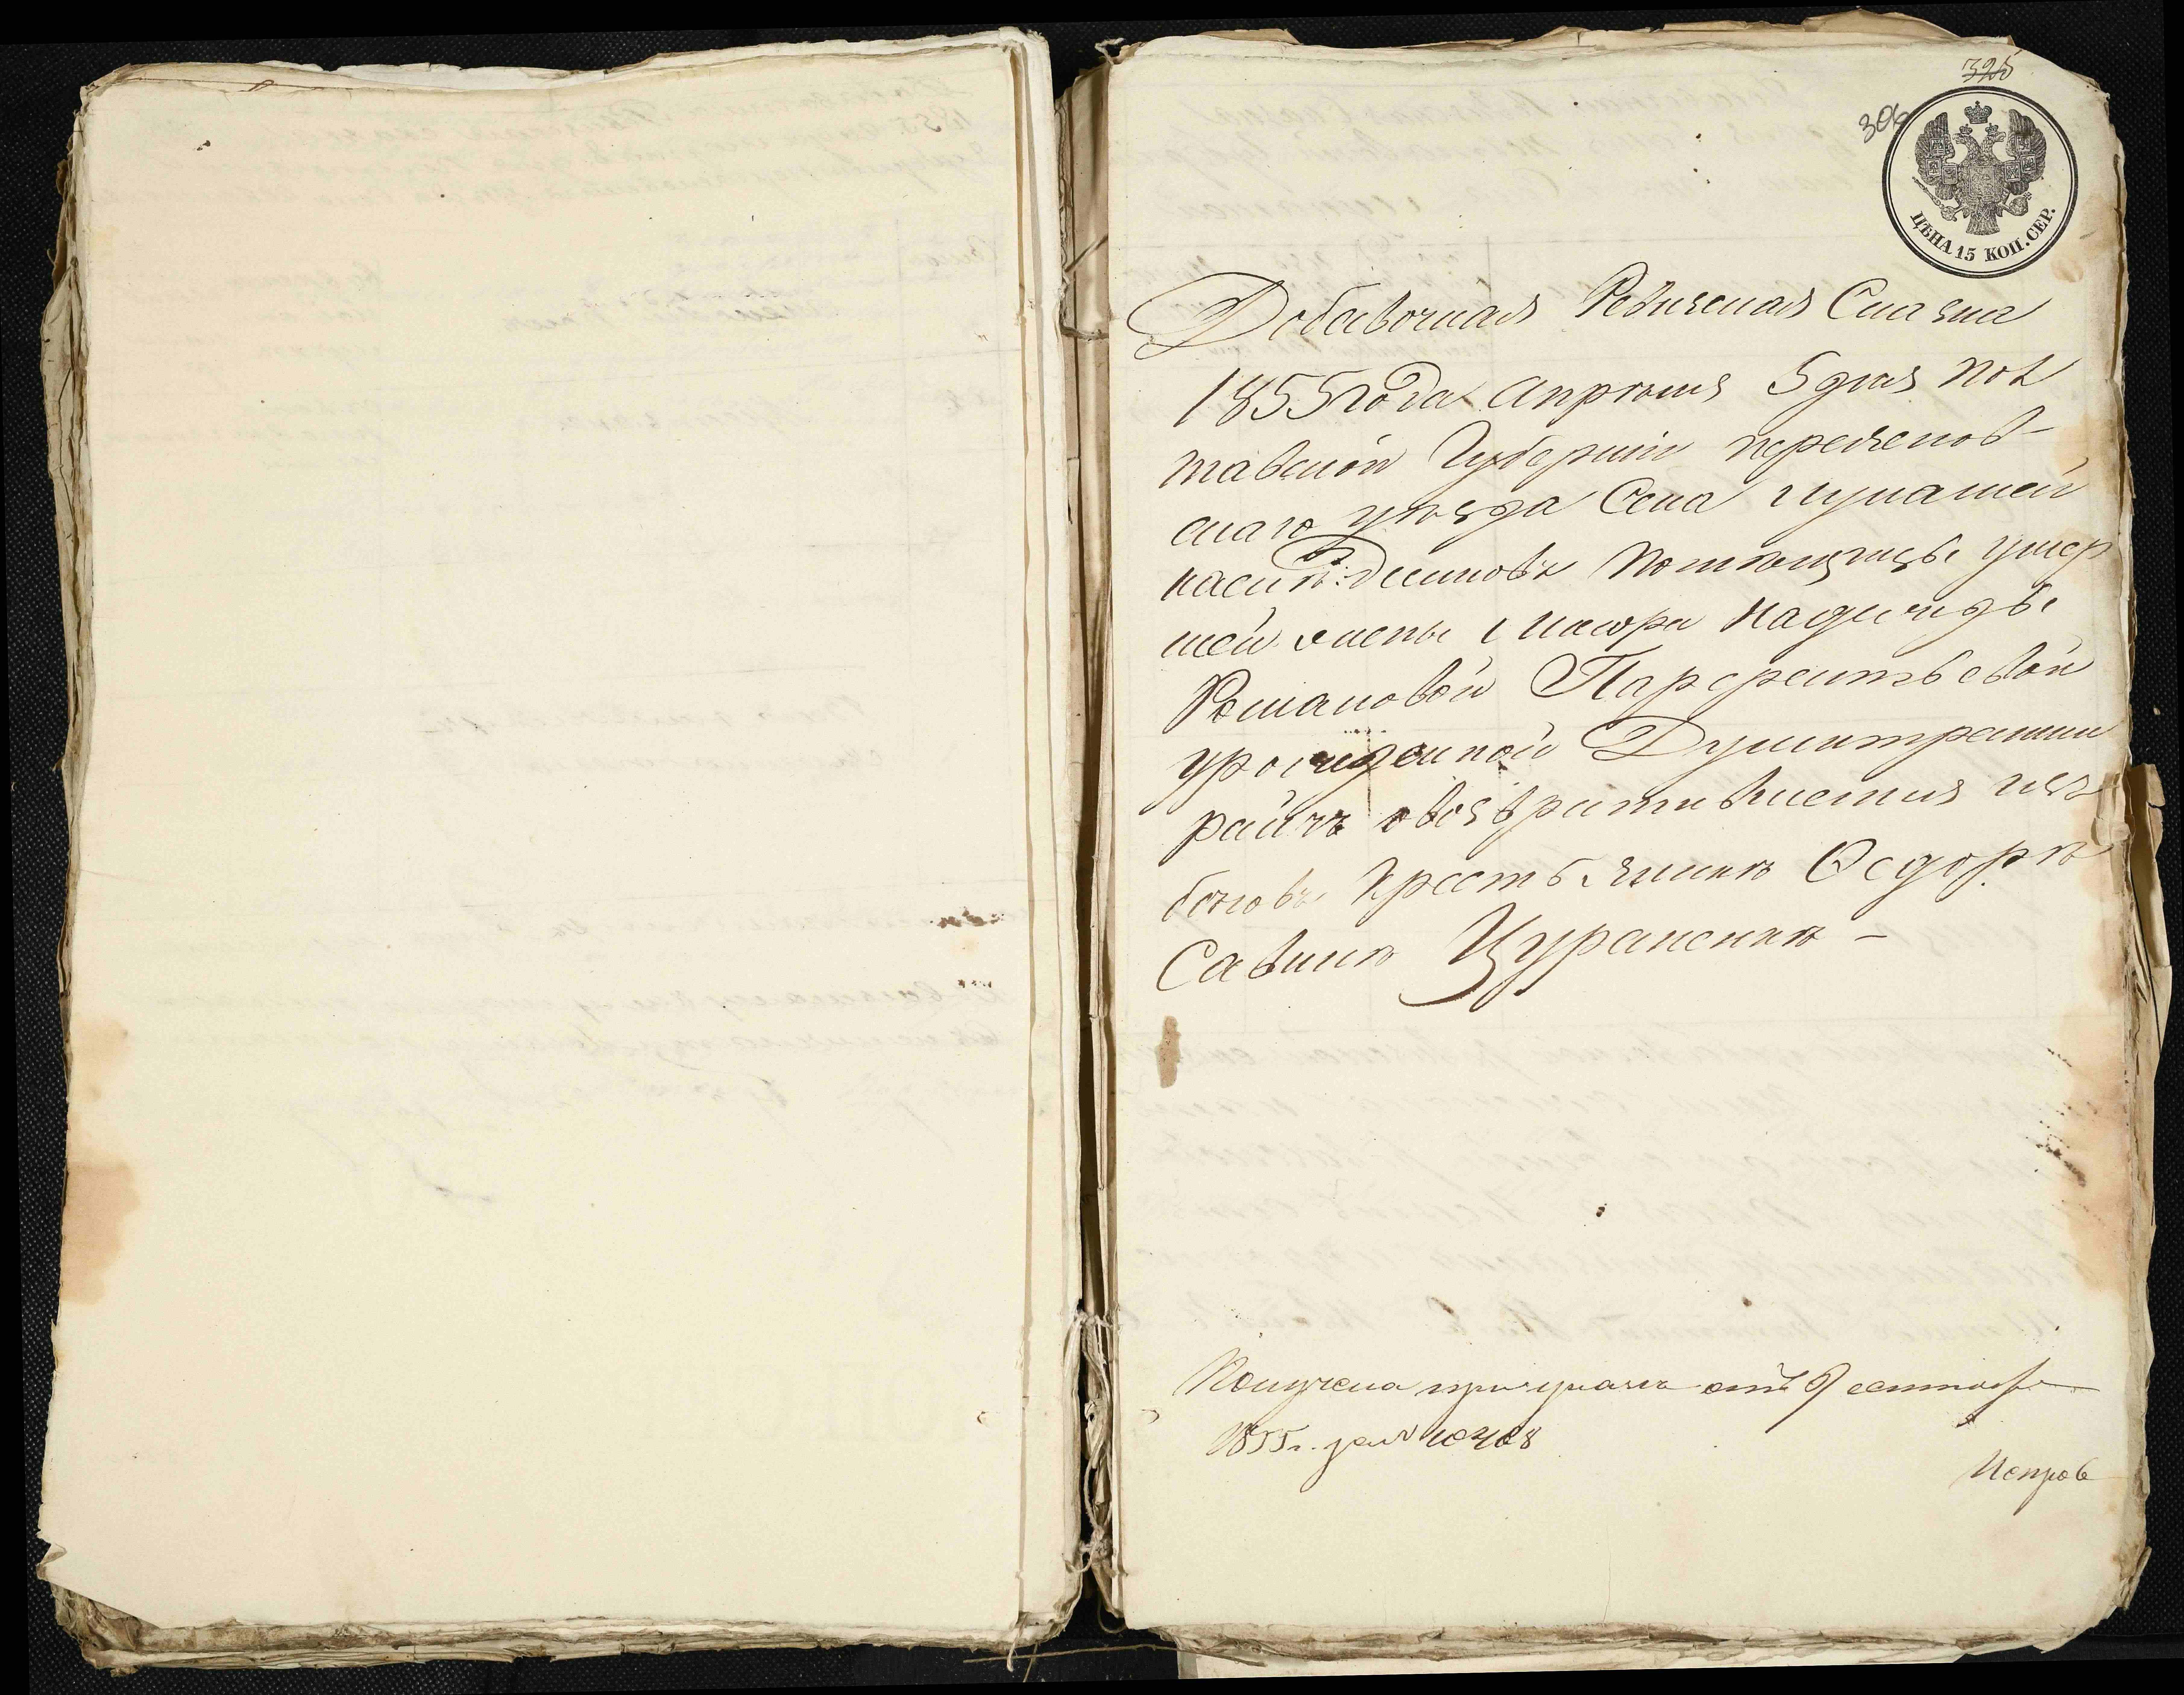 325
306
ЦѢНА 15 КОП. СЕР.
Добавочная Ревизская Сказка
1855 года апрѣля 5 дня Пол
тавской Губерніи переяслов-
скаго уѣзда Села
наслѣдниковъ Помѣщицы умер
шей жены Маіора Надежды
Романовой Парфентьевой
урожденной Думитрашки
райчъ о возвратившемся изъ
бѣговъ Крестьянинѣ Ѳедорѣ
Савинѣ Цураненкѣ –
Получена при указѣ отъ 9 сентября
1855 г. за №
Исправ